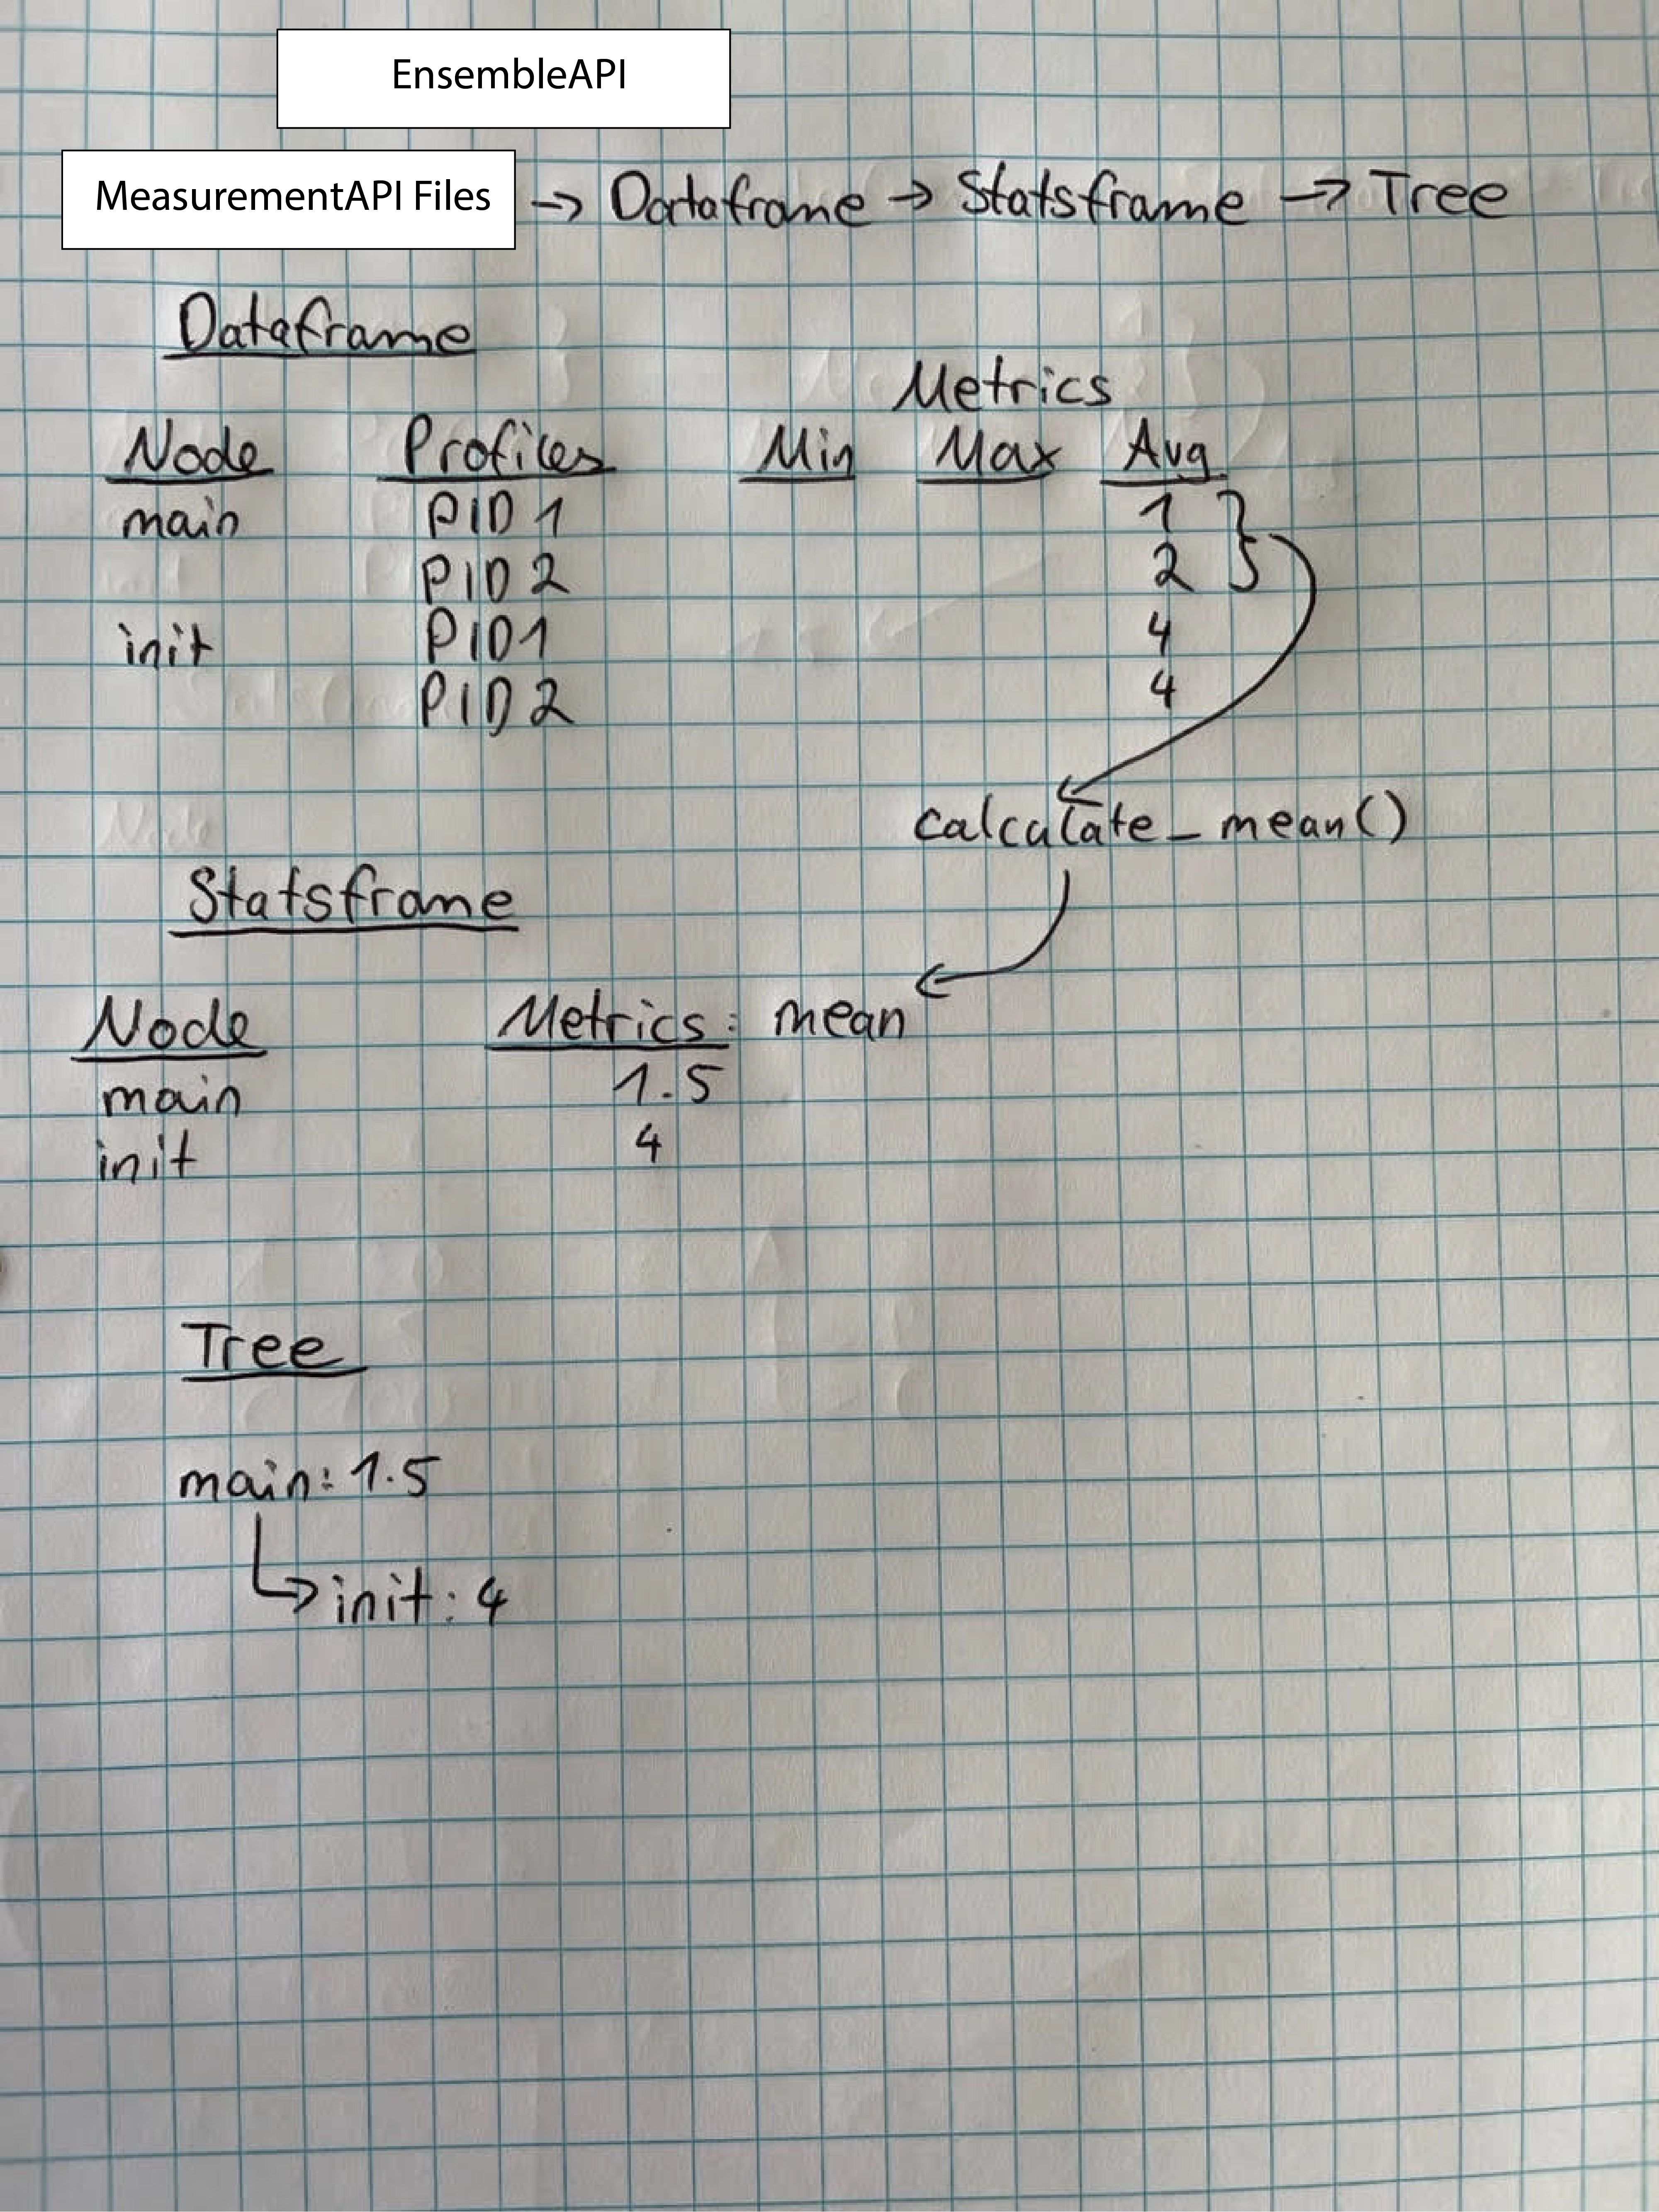 EnsembleAPI
MeasurementAPI Files → Dataframe → Statsframe → Tree
Dataframe
Metrics
Node Profiles Min Max Avg
main PID 1 1
PID 2 2
init PID1 4
PID 2 4
calculate_mean()
Statsframe
Node Metrics: mean
main 1.5
init 4
Tree
main: 1.5
init: 4